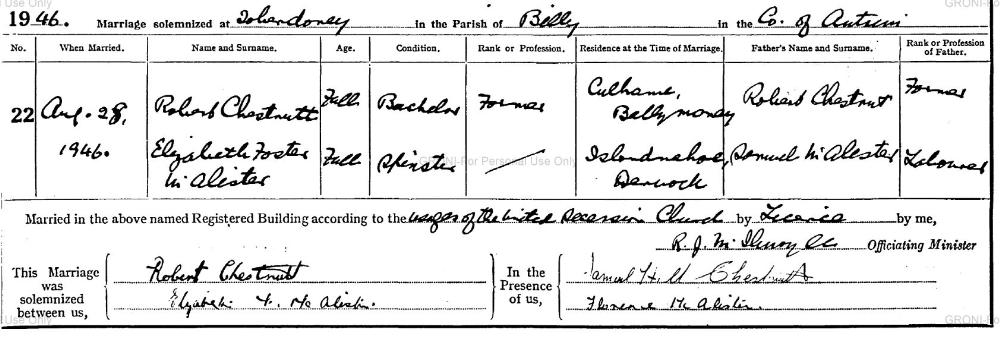 GRONI-
1946. Marriage solemnized at Toberdoney in the Parish of Billy in the Co. of Antrim
No. When Married. Name and Surname. Age. Condition. Rank or Profession. Residence at the Time of Marriage. Father's Name and Surname. Rank or Profession of Father.
22 Aug. 28, 1946. Robert Chestnutt Full Bachelor Farmer Culhame, Ballymoney Robert Chestnut Farmer
Elizabeth Foster McAlister Full Spinster Islandnahoe, Dervock Samuel McAlister Labourer
GRONI-For Personal Use Only
Married in the above named Registered Building according to the usages of the United Secession Church by Licence by me,
R. J. Officiating Minister
This Marriage was solemnized between us,
Robert Chestnutt
Elizabeth F. McAlister.
In the Presence of us,
Samuel Hill Chestnutt
Florence McAlister.
Use Only
GRONI-Fo